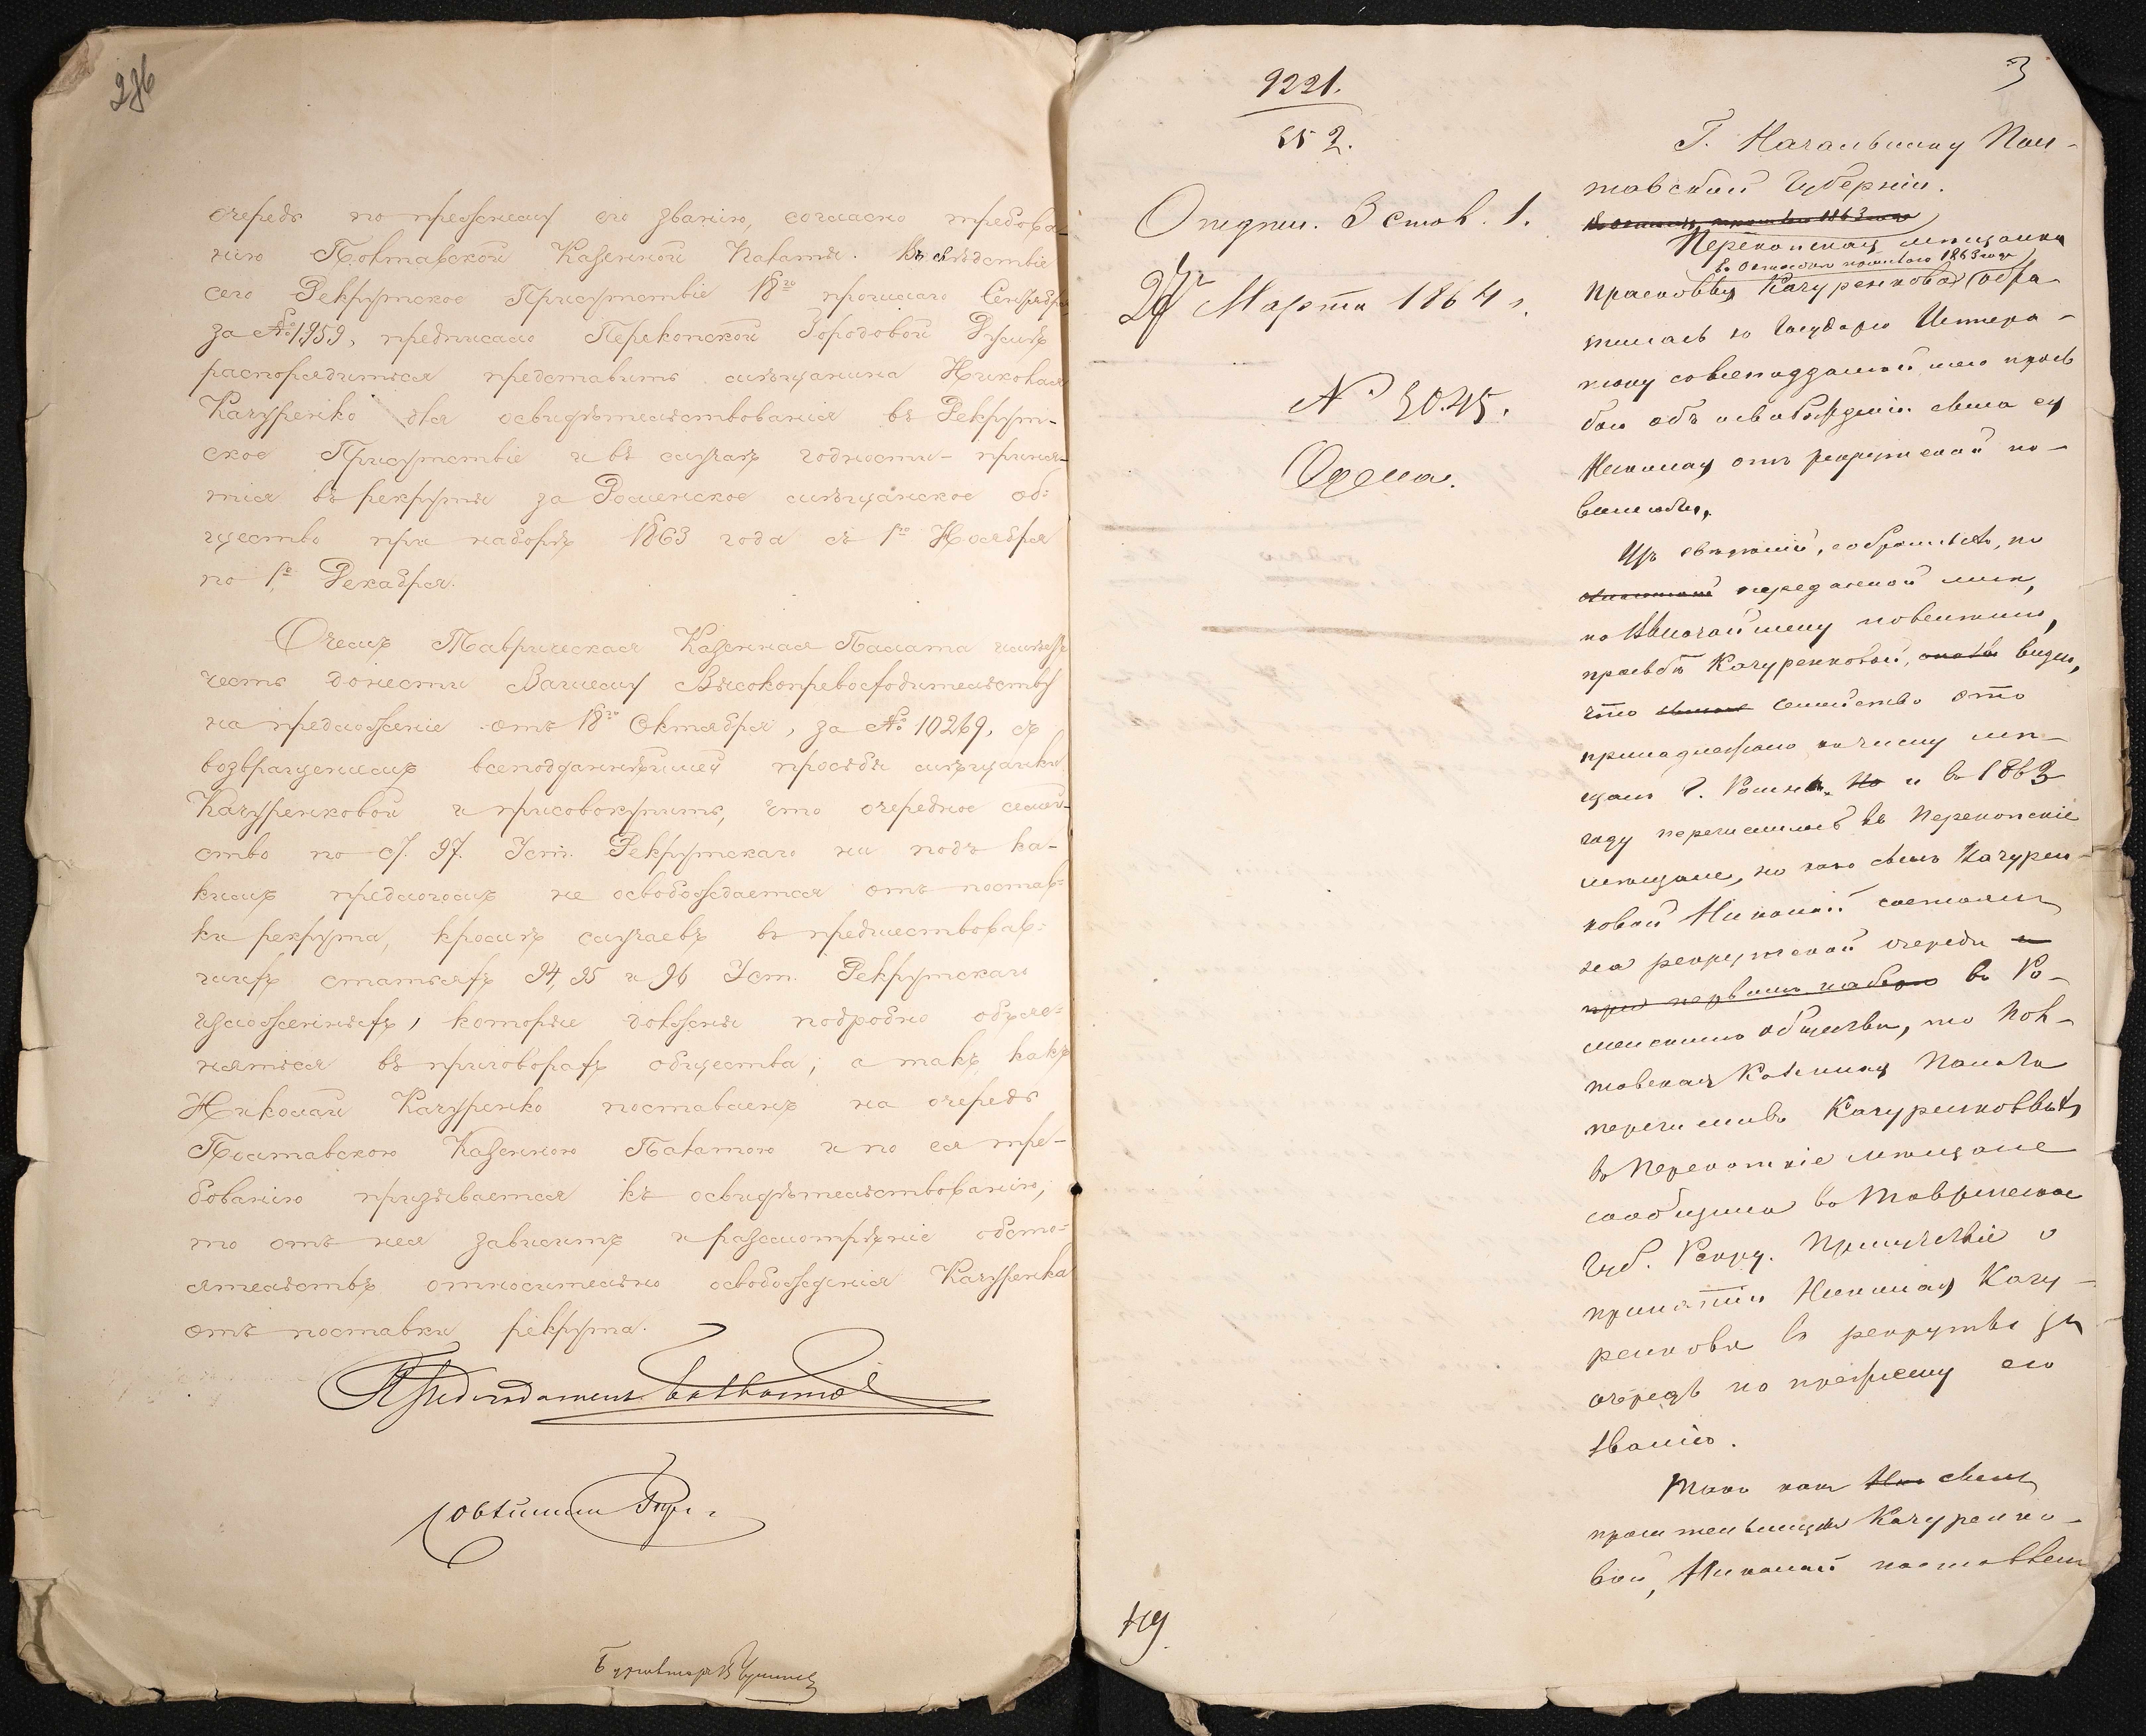 очередь по прежнему его званію, согласно требова-
нію Полтавской Казенной Палаты. Въ слѣдствіе
сего Рекрутское Присутствіе 18го прошлаго Сентября
за № 1959, предписало Перекопской Городовой Думѣ
распорядиться представить мѣщанина Николая
Качуренко для освидѣтельствованія въ Рекрут-
ское Присутствіе и въ случаѣ годности - приня-
тія въ рекруты за Роменское мѣщанское об-
щество при наборѣ 1863 года съ 1го Ноября
по 1е Декабря.
О чемъ Таврическая Казенная Палата имѣетъ
честь донести Вашему Высокопревосходительству
на предложеніе отъ 18го Октября, за № 10269, съ
возвращеніемъ всеподданнѣйшей просьбы мѣщанки
Качуренковой и присовокупить, что очередное семей-
ство по ст. 97. Уст. Рекрутскаго ни подъ ка-
кимъ предлогомъ не освобождается отъ постав-
ки рекрута, кромѣ случаевъ въ предшествовав-
шихъ статьяхъ 94, 95 и 96 Уст. Рекрутскаго
изложенныхъ, которые должны подробно объяс-
няться въ приговорахъ общества; а такъ какъ
Николай Качуренко поставленъ на очередь
Полтавскою Казенною Палатою и по ея тре-
бованію призывается къ освидѣтельствованію,
то отъ нея зависитъ и разсмотрѣніе обсто-
ятельствъ относительно освобожденія Качуренка
отъ поставки рекрута.
Предсѣдатель
Совѣтникъ
Бухгалтеръ
9221.
252.
Отдѣл. 3 стол. 1.
Марта 1864 г.
№ 3045.
Одесса.
119
3
Г. Начальнику Пол-
тавской Губерніи.
въ Октябрѣ прошлаго 1863 года
Перекопская мѣщанка
въ Октябрѣ прошлаго 1863 года
Прасковья Качуренкова обра-
тилась къ Государю Импера-
тору со всеподданнѣйшею прось-
бою объ освобожденіи сына ея
Николая отъ рекрутской по-
винности.
Изъ свѣдѣній, собранныхъ, по
переданной мнѣ,
по Высочайшему повелѣнію,
просьбѣ Качуренковой, видно,
что семейство это
принадлежало къ числу мѣ-
щанъ г. Роменъ. Но и въ 1863
году перечислилось въ Перекопскіе
мѣщане, но какъ сынъ Качурен-
ковой Николай состоялъ
на рекрутской очереди и
при первомъ наборѣ въ Ро-
менскомъ обществѣ, то Пол-
тавская Казенная Палата
перечисливъ Качуренковыхъ
въ Перекопскіе мѣщане
сообщила въ Таврическое
Губ. Рекру. Присутствіе о
принятіи Николая Качу-
ренкова въ рекруты за
очередь по прежнему его
званію.
Такъ какъ сынъ
просительницы Качуренко-
вой, Николай поставленъ